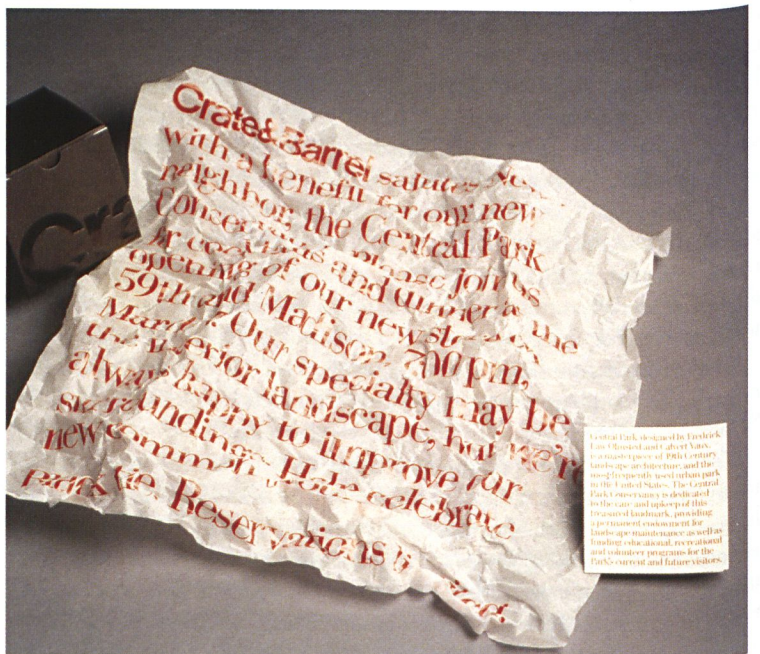 Crate&Barrel salutes
with a benefit for our new
neighbor, the Central Park
Conservancy. Please join us
for cocktails and dinner at the
opening of our new store on
59th and Madison, 7:00 pm,
March Our specialty may be
the interior landscape, but we're
always happy to improve our
surroundings. Help celebrate
new common
Park tie. Reservations
Cra
Central Park, designed by Fredrick
Law Olmsted and Calvert Vaux,
is a masterpiece of 19th Century
landscape architecture, and the
most frequently used urban park
in the United States. The Central
Park Conservancy is dedicated
to the care and upkeep of this
treasured landmark, providing
a permanent endowment for
landscape maintenance as well as
funding educational, recreational
and volunteer programs for the
Park's current and future visitors.